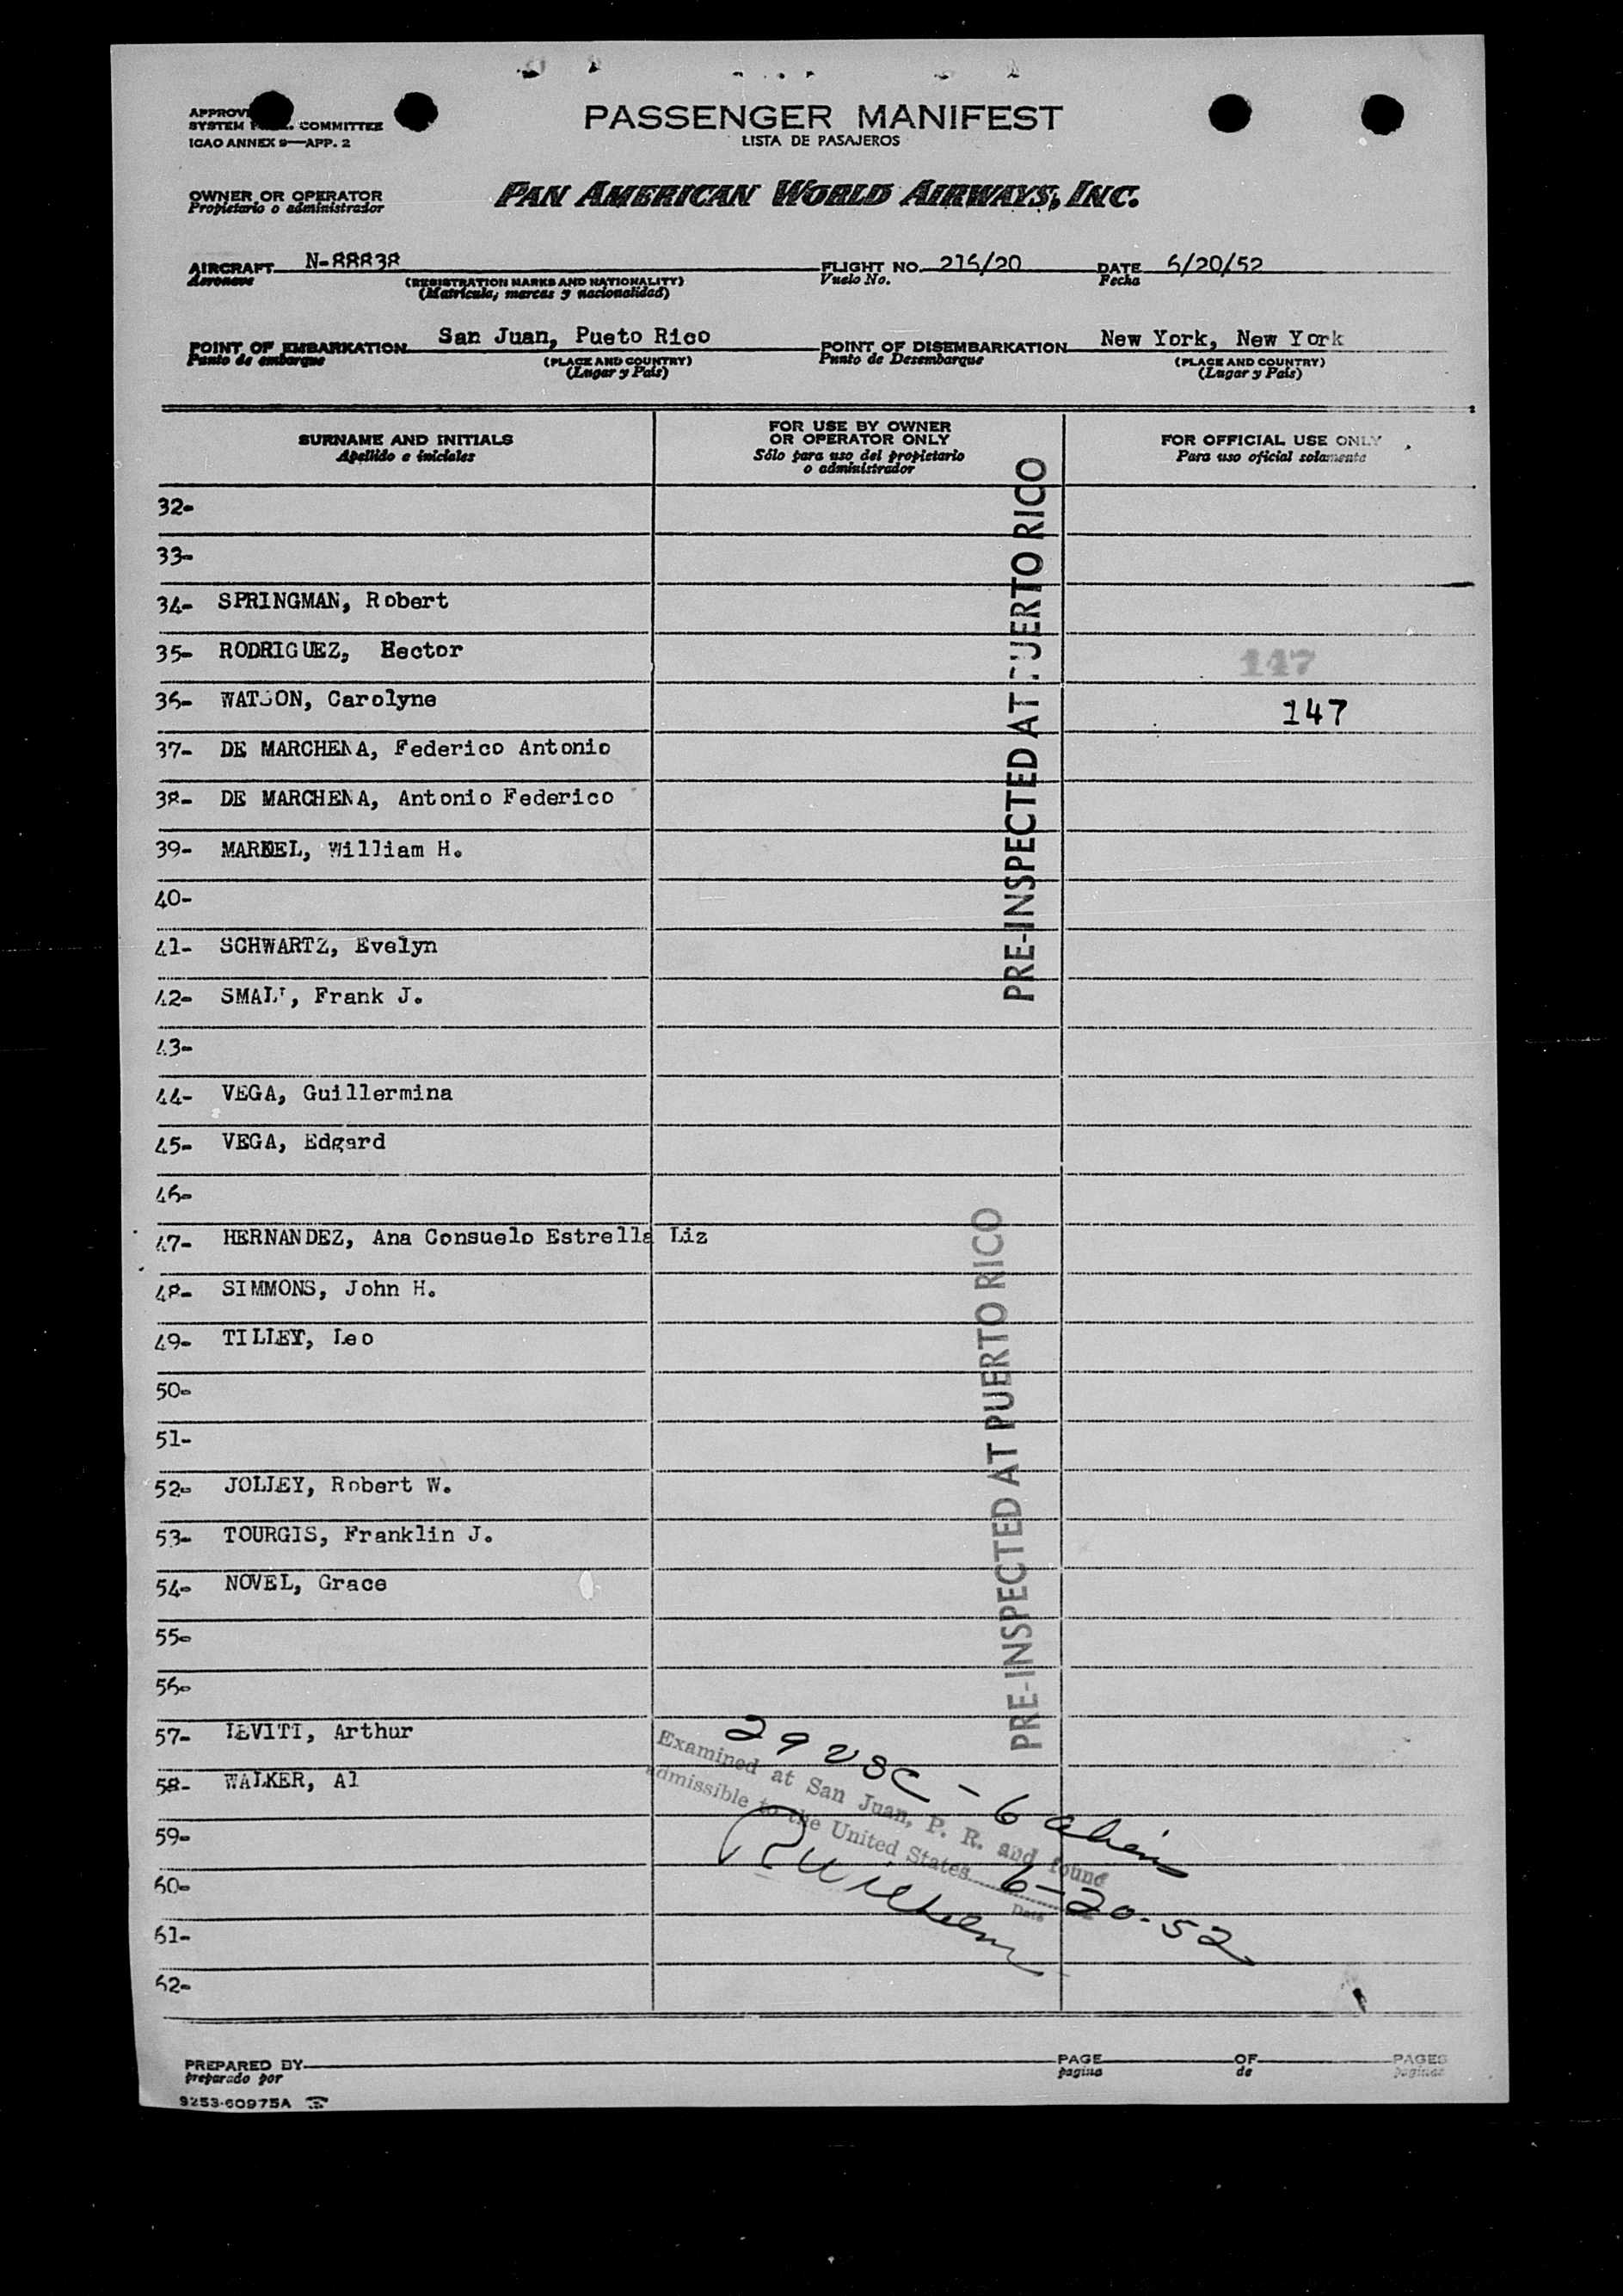 PASSENGER MANIFEST
LISTA DE PASAJEROS
SYSTEM COMMITTEE
ICAO ANNEX 9—APP. 2
OWNER OR OPERATOR
Propietario o administrador
PAN AMERICAN WORLD AIRWAYS, INC.
AIRCRAFT N-88838 FLIGHT NO. 216/20 DATE 6/20/52
Aeronave (REGISTRATION MARKS AND NATIONALITY) Vuelo No. Fecha
(Matrícula, marcas y nacionalidad)
POINT OF EMBARKATION San Juan, Pueto Rico POINT OF DISEMBARKATION New York, New York
Punto de embarque (PLACE AND COUNTRY) Punto de Desembarque (PLACE AND COUNTRY)
(Lugar y País) (Lugar y País)
SURNAME AND INITIALS
Apellido e iniciales
FOR USE BY OWNER
OR OPERATOR ONLY
Sólo para uso del propietario
o administrador
FOR OFFICIAL USE ONLY
Para uso oficial solamente
32-
33-
34- SPRINGMAN, Robert
35- RODRIGUEZ, Hector 147
36- WATSON, Carolyne 147
37- DE MARCHENA, Federico Antonio
38- DE MARCHENA, Antonio Federico
39- William H.
40-
41- SCHWARTZ, Evelyn
42- SMALL, Frank J.
43-
44- VEGA, Guillermina
45- VEGA, Edgard
46-
47- HERNANDEZ, Ana Consuelo Estrella Liz
48- SIMMONS, John H.
49- TILLEY, Leo
50-
51-
52- JOLLEY, Robert W.
53- TOURGIS, Franklin J.
54- NOVEL, Grace
55-
56-
57- LEVITT, Arthur
58- WALKER, Al
59-
60-
61-
62-
PRE-INSPECTED AT PUERTO RICO
PRE-INSPECTED AT PUERTO RICO
29 USC - 6 aliens
Examined at San Juan, P. R. and found
admissible to the United States 6-20-52
Date
PREPARED BY PAGE OF PAGES
preparado por pagina de paginas
9253-60975A